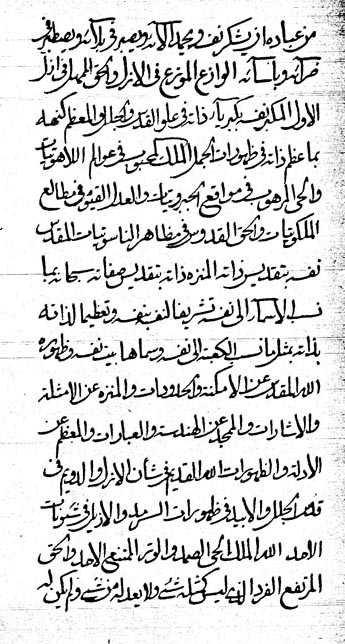 من عباده ان يشكر نفسه ويحمد آلائه ويصبر في بلائه ويصطبر في
ضرائه وبأسائه الوازع الموزع في الازل والحق المهلل في ازل
الاول المكبر نفسه بكبرياء ذاته في علو القدس والجلال والمعظم كنهه
بما عظم ذاته في ظهورات الجمال الملك المحبوب في عوالم اللاهوتيات
والحي المرهوب في مواقع الجبروتيات والعدل القيوم في مطالع
الملكوتيات والحق القدوس في مظاهر الناسوتيات المقدس
نفسه بتقديس ذاته المنزه ذاته بتقديس صفاته سبحانه بما
نسب الاسماء الى نفسه تشريفا لنفسه بنفسه وتعظيما لذاته
بذاته بمثل ما نسب الكعبة الى نفسه وسماها بيت نفسه وظهوره
الله المقدس عن الامكنة والحدودات والمنزه عن الامثلة
والاشارات والمجد عن الهندسة والعبارات والمعظم عن
الادلة والظهورات الله القديم في شأن الازل والدويم في
قدم الجلال والابيد في ظهورات السرمد والازيل في شئونات
الامد الله الملك الحي الصمد والوتر الممتنع الاحد والحق
المرتفع الفرد الذي ليس كمثله شيء ولا يعدله من شيء ولم يكن له